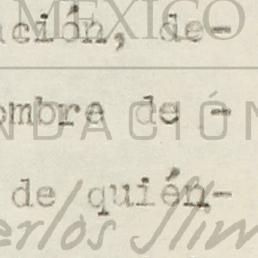 MÉXICO
ación, de-
ombre de -
NDACIÓN
de quién-
erlos Slim